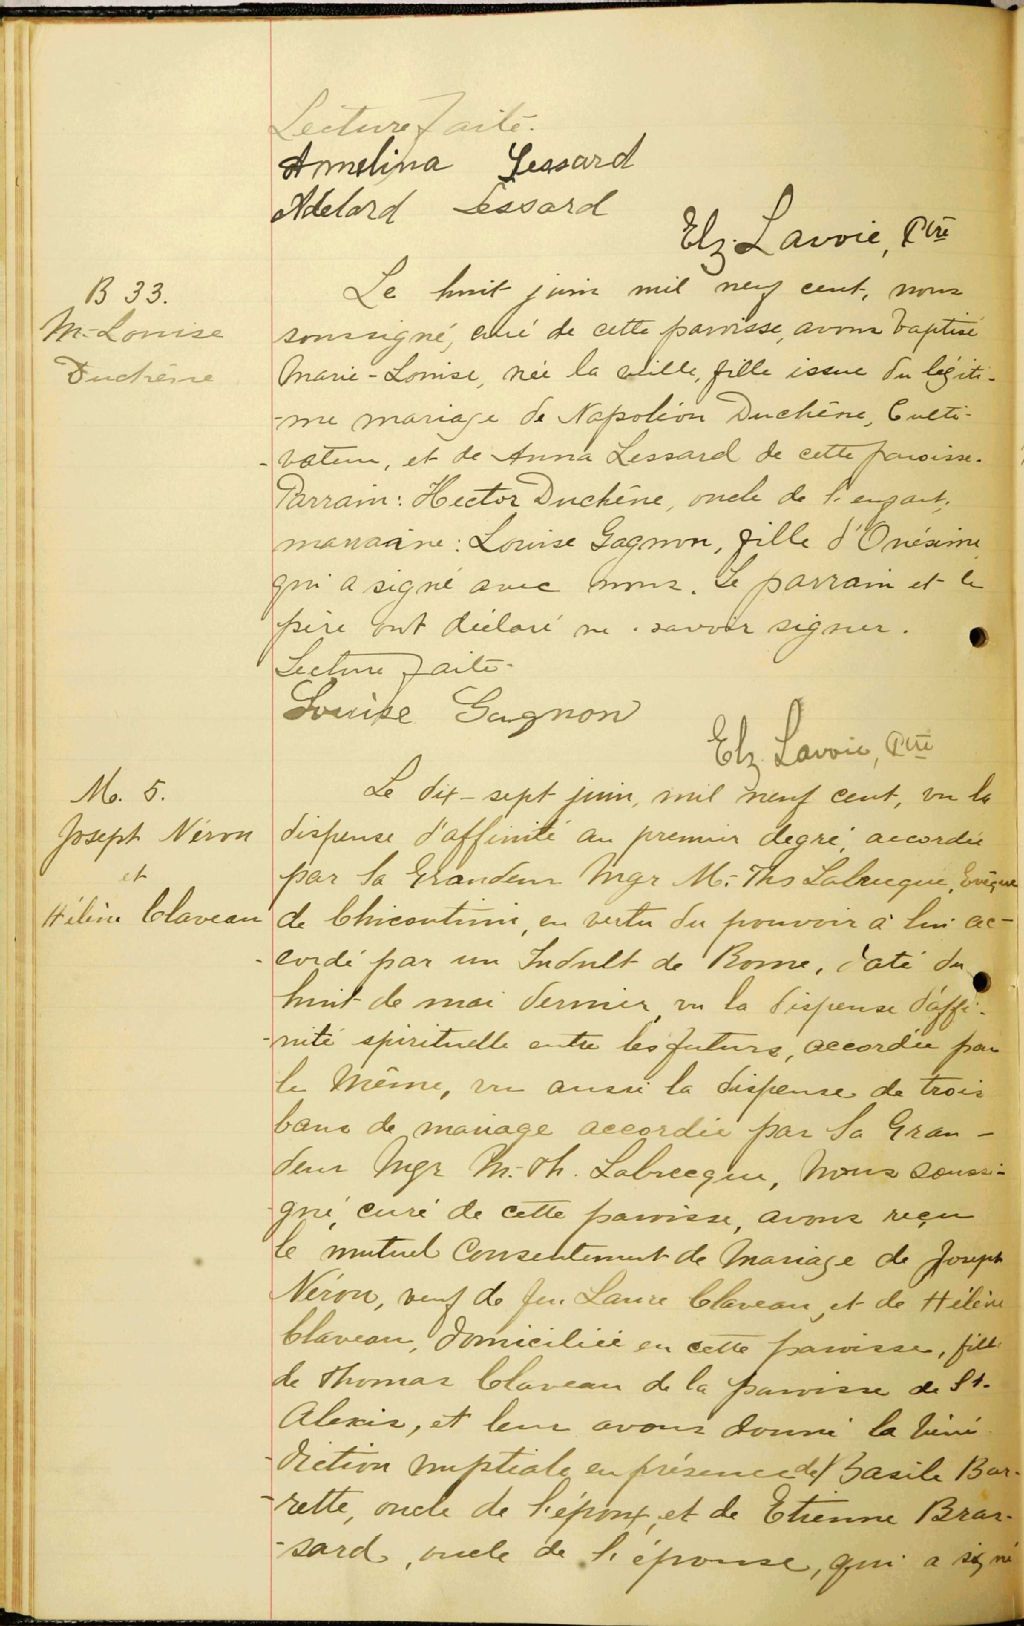 Lecture faite.
Amelina Lessard
Adelard Lessard
Elz. Lavoie, Ptre
B 33.
M.-Louise
Duchêne
Le huit juin mil neuf cent, nous
soussigné, curé de cette paroisse, avons baptisé
Marie-Louise, née la veille, fille issue du légiti-
-me mariage de Napoléon Duchêne, Culti-
-vateur, et de Anna Lessard de cette paroisse.
Parrain: Hector Duchêne, oncle de l'enfant;
marraine: Louise Gagnon, fille d'Onésime
qui a signé avec nous. Le parrain et le
père ont déclaré ne savoir signer.
Lecture faite.
Louise Gagnon
Elz. Lavoie, Ptre
M. 5.
Joseph Néron
et
Hélène Claveau
Le dix-sept juin, mil neuf cent, vu la
dispense d'affinité au premier degré, accordée
par Sa Grandeur Mgr M.-Ths Labrecque, Evêque
de Chicoutimi, en vertu du pouvoir à lui ac-
-cordé par un Indult de Rome, daté du
huit de mai dernier, vu la dispense d'affi-
-nité spirituelle entre les futurs, accordée par
le Même, vu aussi la dispense de trois
bans de mariage accordée par Sa Gran-
deur Mgr M.-Th. Labrecque, Nous soussi-
gné, curé de cette paroisse, avons reçu
le mutuel Consentement de Mariage de Joseph
Néron, veuf de feu Laure Claveau, et de Hélène
Claveau, domiciliée en cette paroisse, fille
de Thomas Claveau de la paroisse de St-
Alexis, et leur avons donné la béné-
-diction nuptiale en présence de Basile Bar-
-rette, oncle de l'époux, et de Etienne Bras-
-sard, oncle de l'épouse, qui a signé